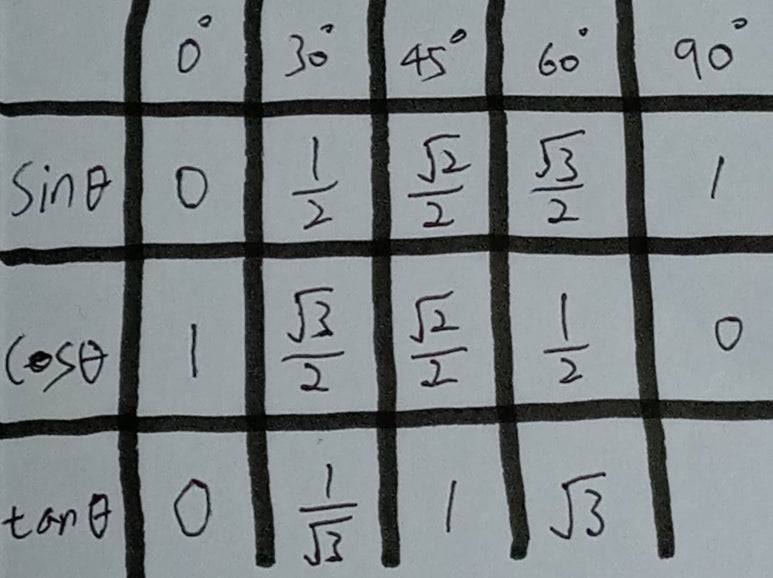 0° 30° 45° 60° 90°
sinθ 0 1/2 √2/2 √3/2 1
cosθ 1 √3/2 √2/2 1/2 0
tanθ 0 1/√3 1 √3